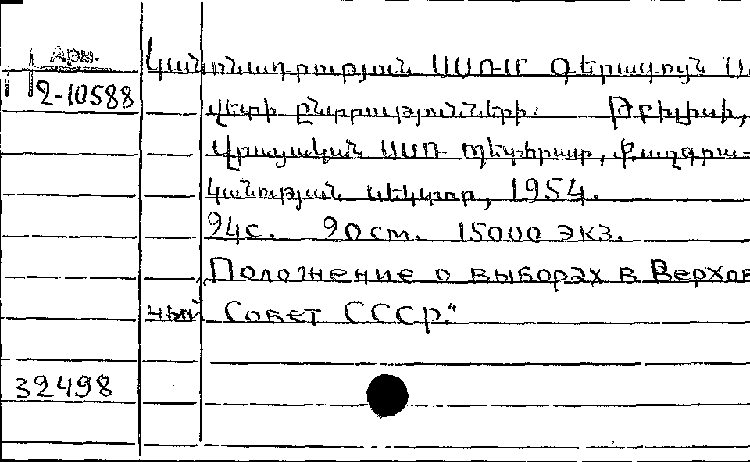 Арм.
Կանոնադրություն ՍՍՌՄ Գերագույն Սո
2-10588
վետի ընտրությունների. Թբիլիսի,
Վրացական ՍՍՌ պետհրատ, քաղգրա-
կանության սեկտոր, 1954.
94с. 20см. 15000 экз.
„Положение о выборах в Верхов
ный Совет СССР."
32498